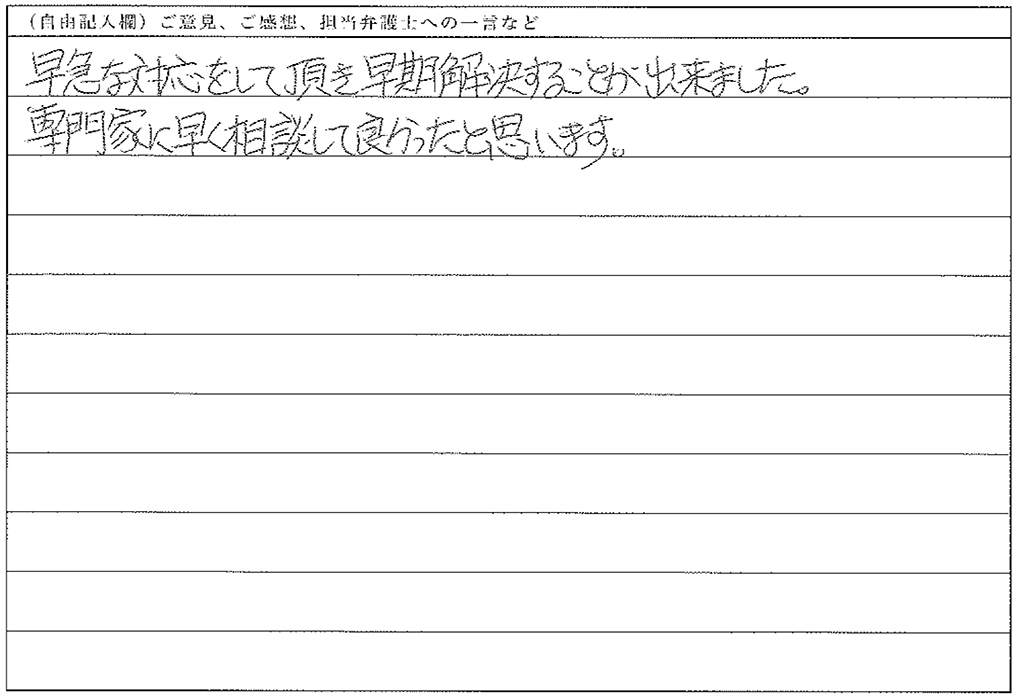 （自由記入欄）ご意見、ご感想、担当弁護士への一言など
早急な対応をして頂き早期解決することが出来ました。
専門家に早く相談して良かったと思います。